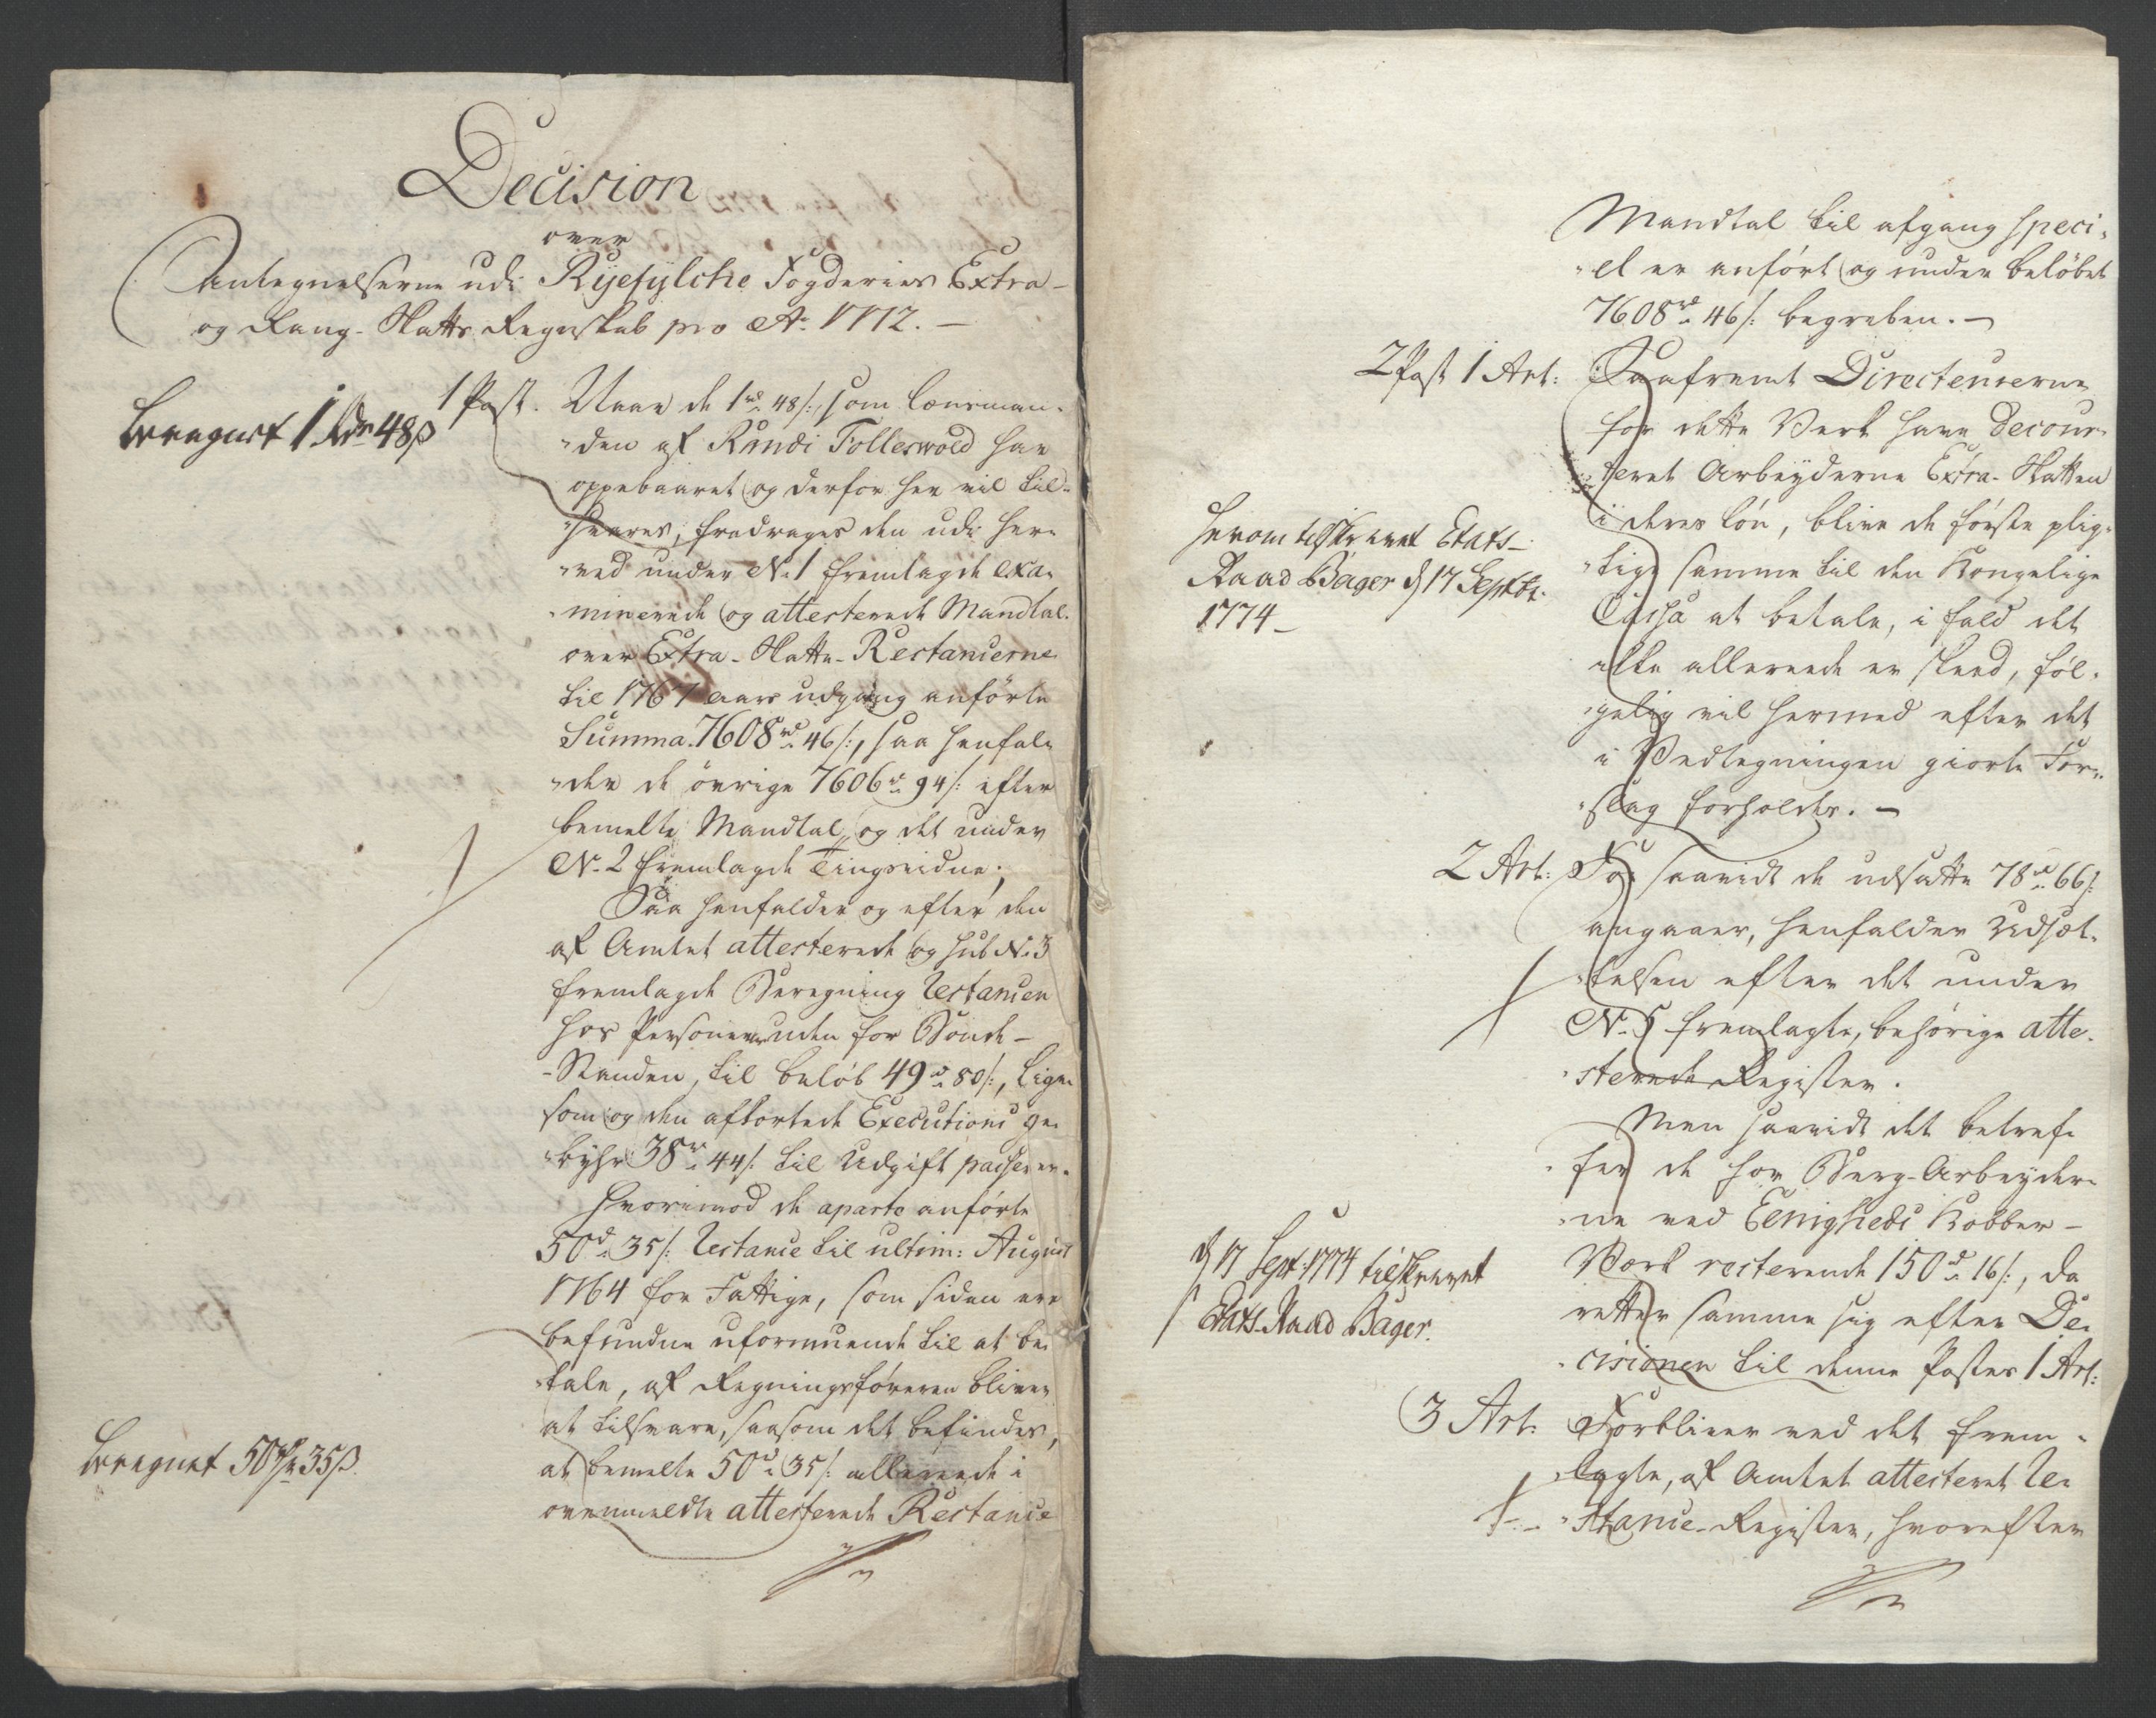 Decision
over
Antegnelserne udi Ryefylche Fogderies Extra-
og Rang-Skatts Regnskab pro Ao 1772.
Beregnet 1 Rdr 48ß
1 Post.
Naar de 1 rd 48 ß:, som Lænsman-
den af Randi Folleswold har
oppebaaret og derfor her vil til-
svares, fradrages den udi her-
ved under No 1 fremlagde exa-
minerede og attesterede Mandtal
over Extra-Skatte-Restancerne
til 1767 aars udgang anførte
Summa 7608 rd 46 ß:, saa henfal-
der de övrige 7606 rd 94 ß: efter
bemelte Mandtal og det under
No 2 fremlagde Tingsvidne;
Saa henfalder og efter den
af Amtet attesterede og sub No 3
fremlagde Beregning Restancen
hos Personer uden for Bonde-
Standen, til beløb 49 rd 80 ß:, lige-
som og den afkortede Executions ge-
byhr 38 rd 44 ß: til Udgift passerer.
Hvorimod de aparte anførte
50 rd 35 ß: Restance til ultim: August
1764 for Fattige, som siden ere
befundne uformuende til at be-
tale, af Regningsføreren bliver
at tilsvare, saasom det befindes,
at bemelte 50 rd 35 ß: allerede i
ovenmeldte attesterede Restance
Beregnet 50 Rdr 35 ß.
Mandtal til afgang speci-
el er anført og under beløbet
7608 rd 46 ß: begreben.
2 Post 1 Art:
Saafremt Directeurerne
for dette Verk have decour-
teret Arbeyderne Extra-Skatten
i deres løn, blive de første plig-
tige samme til den Kongelige
Cassa at betale, i fald det
ikke allerede er skeed, føl-
gelig vil hermed efter det
i Vedtegningen giorte For-
slag forholdes.
Herom tilskrevet Etats-
Raad Bager d 17 Septbr.
1774
2 Art:
For saavidt de udsatte 78 rd 66 ß:
angaaer, henfalder Udsæt-
telsen efter det under
No 5 fremlagte, behørige atte-
sterede Register.
Men saavidt det betref-
fer de hos Berg-Arbeyder-
ne ved Eenigheds Kobber-
Værk resterende 150 rd 16 ß:, da
retter samme sig efter De-
cisionen til denne Postes 1 Art:
d 17 Sept: 1774 tilskrevet
Etats-Raad Bager.
3 Art:
Forbliver ved det frem-
lagte, af Amtet attesteret Re-
stance-Register, hvorefter